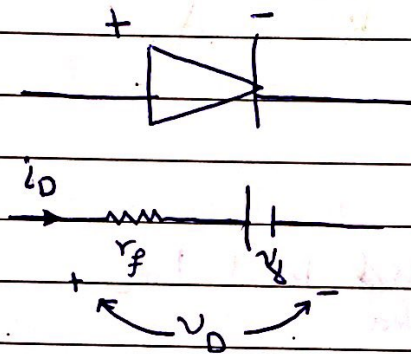 + -
i_D
r_f v_γ
+ -
v_D